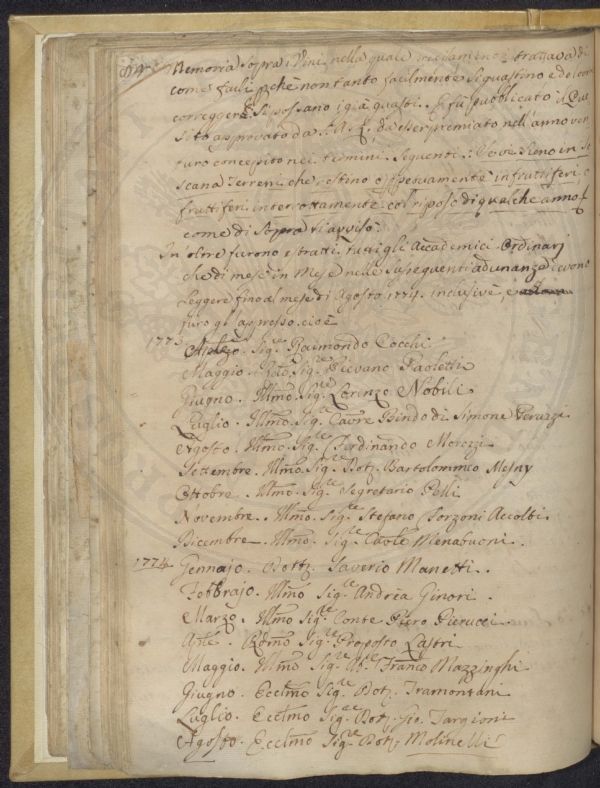 Memoria sopra i Vini nella quale trattava di
come farli pche non tanto facilmente si guastino e
correggere si possano i gia guasti. fù pubblicato il
sito approvato da S. A. R. da esser premiato nell'anno ven
turo concepito nei termini seguenti: Dove sieno in To
scana Terreni che restino o ppetuamente infruttiferi, o
fruttiferi interrottamente col riposo di qualche anno
come di sopra
In oltre furono estratti tutti gli Accademici Ordinarj
che di mese in Mese nelle susseguenti adunanze devono
Leggere fino al mese di Agosto 1774. inclusive, e
furo gl'appresso cioè
1773
Sigre Raimondo Cocchi.
Maggio. Sigre Pievano Paoletti
Giugno. Illmo. Sigre Lorenzo Nobili.
Luglio. Illmo. Sigre Cavre Bindo di Simone Peruzzi
Agosto. Illmo. Sigre Ferdinando Morozzi
Settembre. Illmo. Sigre Dott. Bartolommeo Mesny
Ottobre. Illmo. Sigre Segretario Pelli
Novembre. Illmo. Sigre Stefano Sorzoni Accolti.
Dicembre. Illmo. Sigre Menabuoni.
1774. Gennajo. Dott. Saverio Manetti.
Febbrajo. Illmo Sigre Andrea Ginori.
Marzo. Illmo. Sigre Conte Piero Pierucci
Aple. Rdmo. Sigre Proposto Lastri
Maggio. Illmo Sigre Franco Mazzinghi
Giugno. Ecclmo Sigre Dott. Tramontani
Luglio. Ecclmo Sigre Dott. Gio. Targioni
Agosto. Ecclmo Sigre Dott. Molinelli